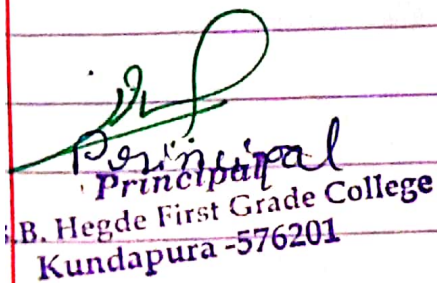 Principal
Principal
.B. Hegde First Grade College
Kundapura -576201